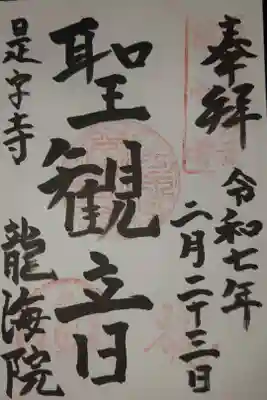 奉拝
令和七年
二月二十三日
聖観立日
龍海院
是字寺